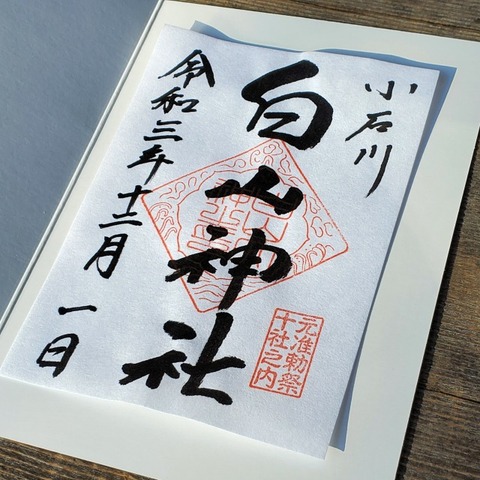 小石川
白山神社
令和三年十二月一日
元准勅祭
十社之内